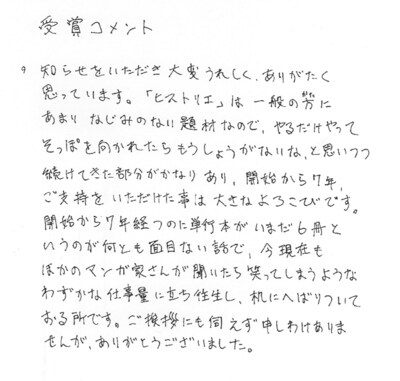 受賞コメント
知らせをいただき大変うれしく、ありがたく
思っています。「ヒストリエ」は一般の方に
あまりなじみのない題材なので、やるだけやって
そっぽを向かれたらもうしょうがないな、と思いつつ
続けてきた部分がかなりあり、開始から7年、
ご支持をいただけた事は大きなよろこびです。
開始から7年経つのに単行本がいまだ6冊と
いうのが何とも面目ない話で、今現在も
ほかのマンガ家さんが聞いたら笑ってしまうような
わずかな仕事量に立ち往生し、机にへばりついて
おる所です。ご挨拶にも伺えず申しわけありま
せんが、ありがとうございました。